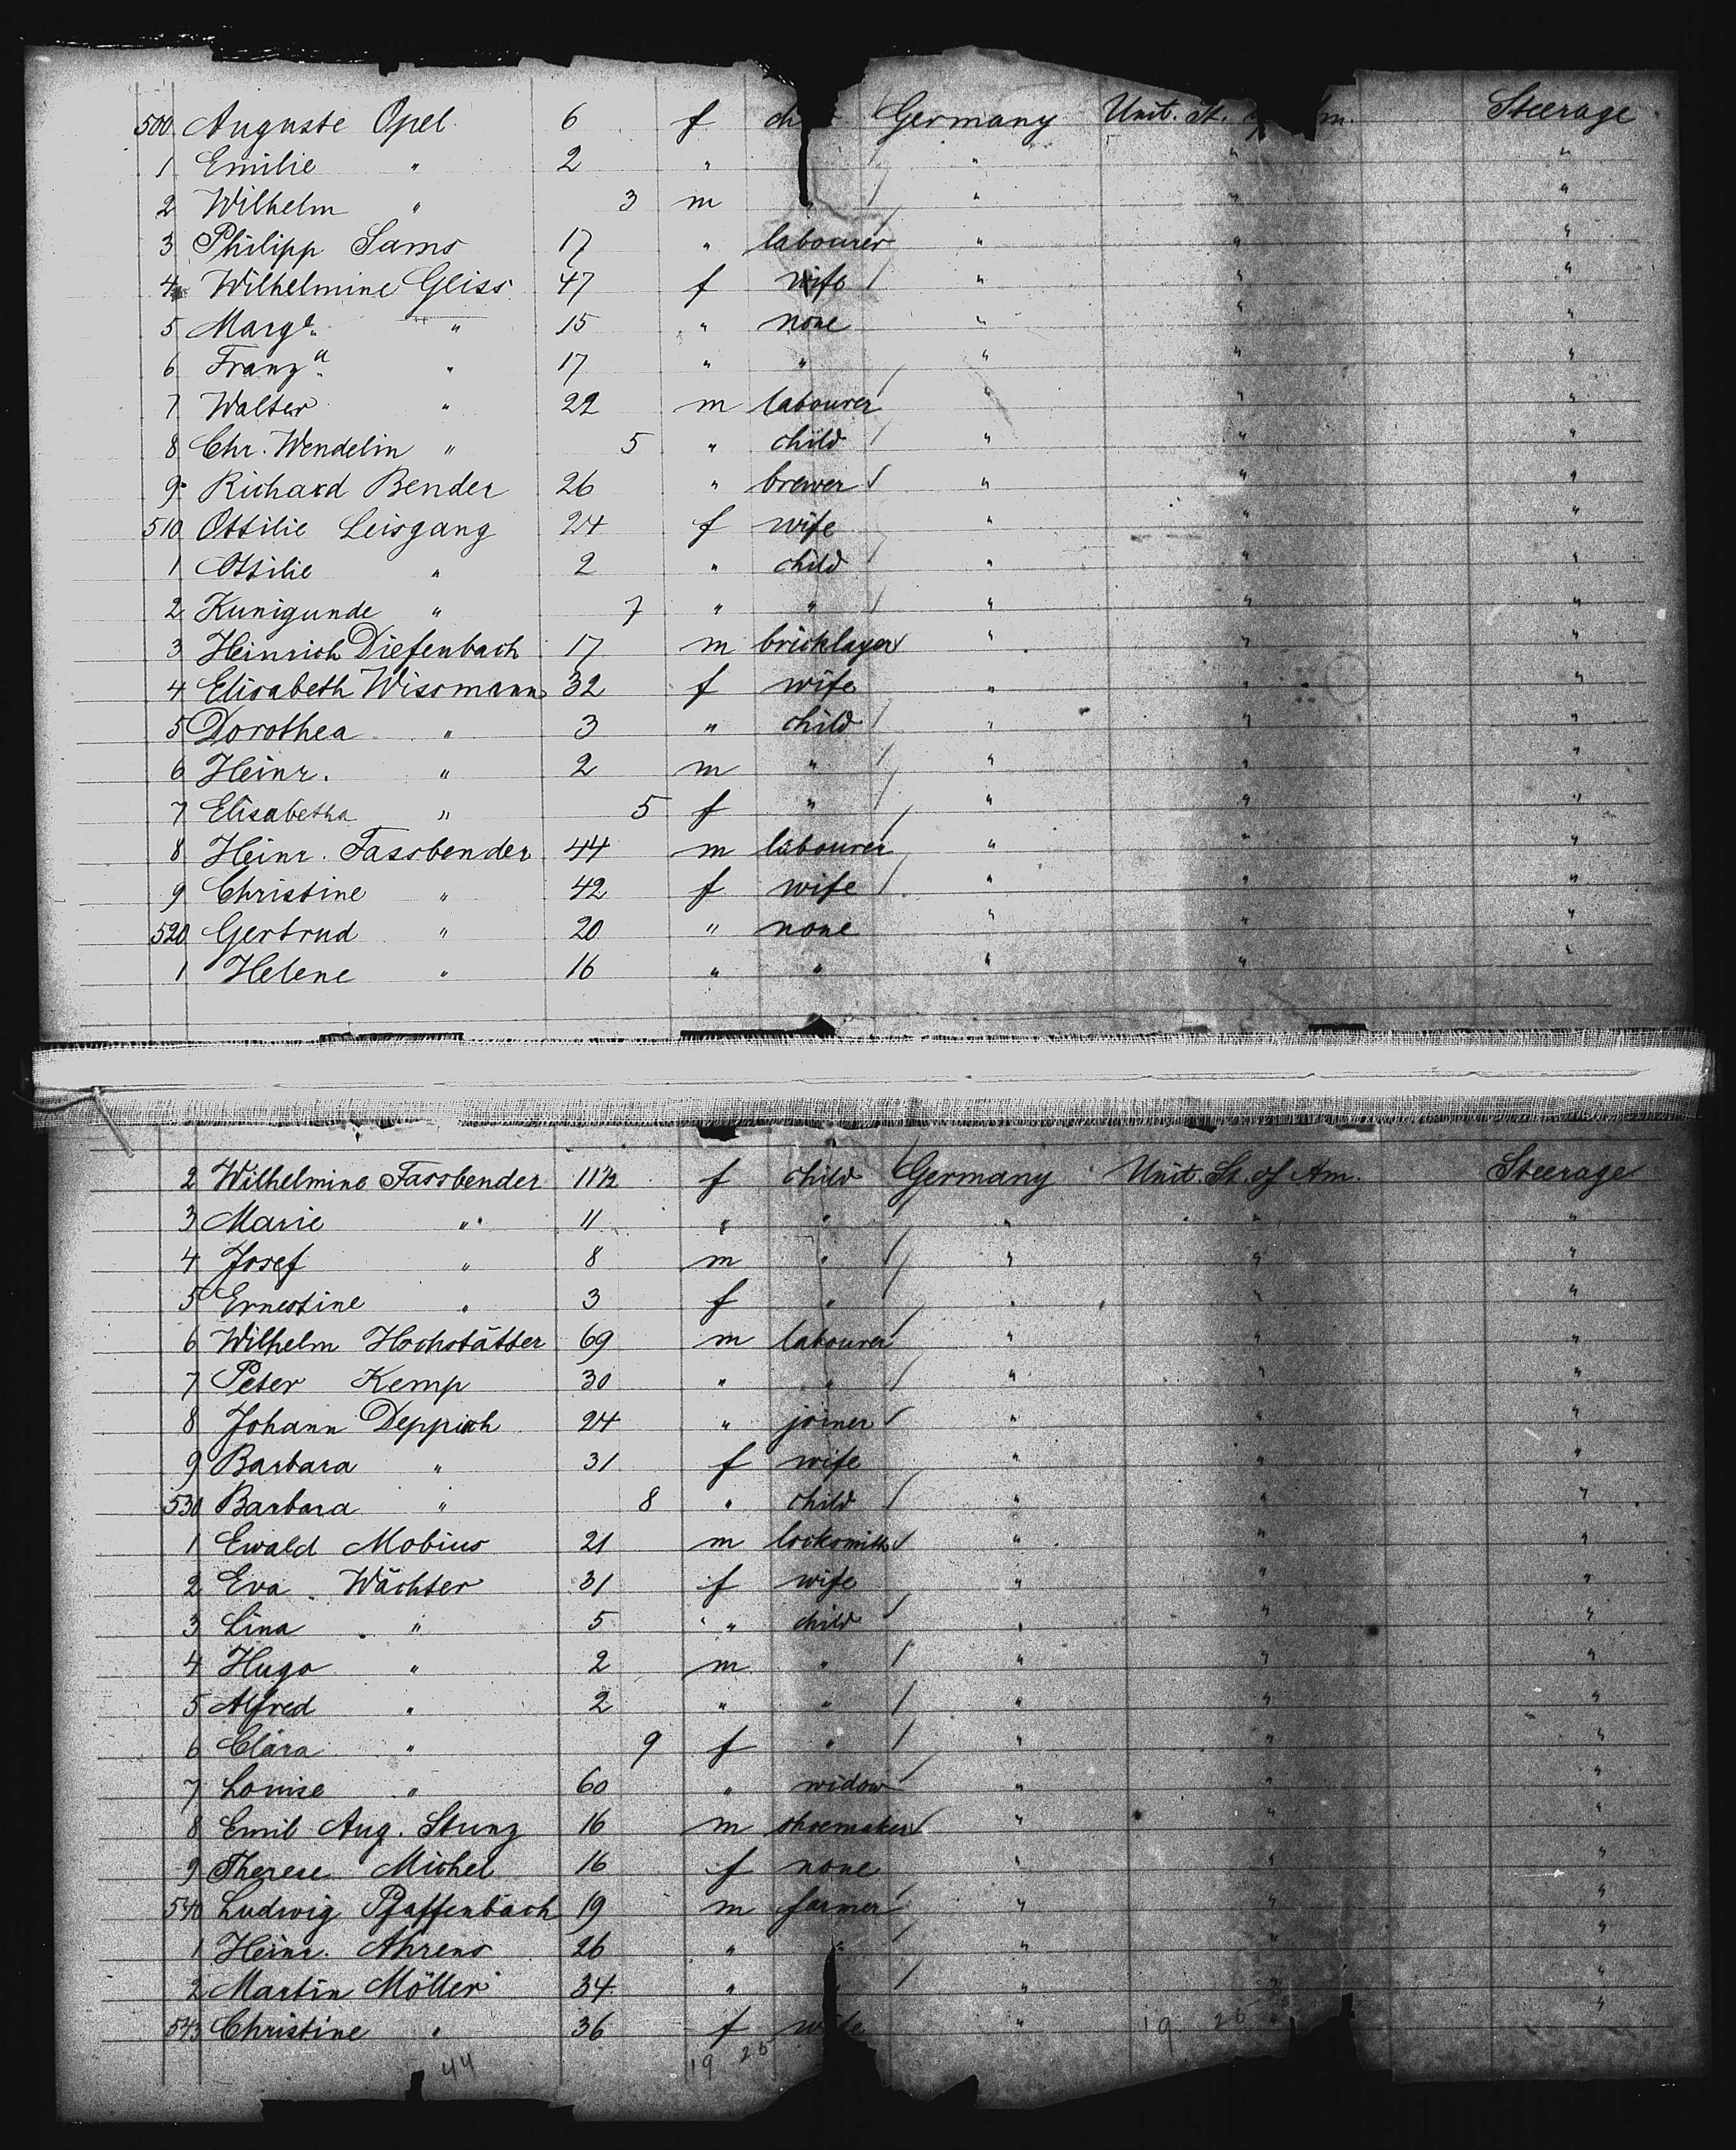 500 Auguste Opel 6 f Germany Unit. St. Steerage
1 Emilie " 2 " " " "
2 Wilhelm " 3 m " " " "
3 Philipp Sams 17 " labourer " " "
4 Wilhelmine Gliss 47 f wife " " "
5 Marg. " 15 " none " " "
6 Franz.a " 17 " " " " "
7 Walter " 22 m labourer " " "
8 Chr. Wendelin " 5 " child " " "
9 Richard Bender 26 " brewer " " "
510 Ottilie Leisgang 24 f wife " " "
1 Ottilie " 2 " child " " "
2 Kunigunde " 7 " " " " "
3 Heinrich Diefenbach 17 m bricklayer " " "
4 Elisabeth Wissmann 32 f wife " " "
5 Dorothea " 3 " child " " "
6 Heinr. " 2 m " " " "
7 Elisabetha " 5 f " " " "
8 Heinr. Fassbender 44 m labourer " " "
9 Christine " 42 f wife " " "
520 Gertrud " 20 " none " " "
1 Helene " 16 " " " " "
2 Wilhelmine Fassbender 11½ f child Germany Unit. St. of Am. Steerage
3 Marie " 11 " " " " "
4 Josef " 8 m " " " "
5 Ernestine " 3 f " " " "
6 Wilhelm Hochstätter 69 m labourer " " "
7 Peter Kemp 30 " " " " "
8 Johann Deppisch 24 " joiner " " "
9 Barbara " 31 f wife " " "
530 Barbara " 8 " child " " "
1 Ewald Mobius 21 m locksmith " " "
2 Eva Wächter 31 f wife " " "
3 Lina " 5 " child " " "
4 Hugo " 2 m " " " "
5 Alfred " 2 " " " " "
6 Clara " 9 f " " " "
7 Louise " 60 " widow " " "
8 Emil Aug. Stunz 16 m shoemaker " " "
9 Therese Michel 16 f none " " "
540 Ludwig Pfaffenbach 19 m farmer " " "
1 Heinr. Ahrens 26 " " " " "
2 Martin Möller 34 " " " "
543 Christine " 36 f wife " " "
19 25
44 19 25